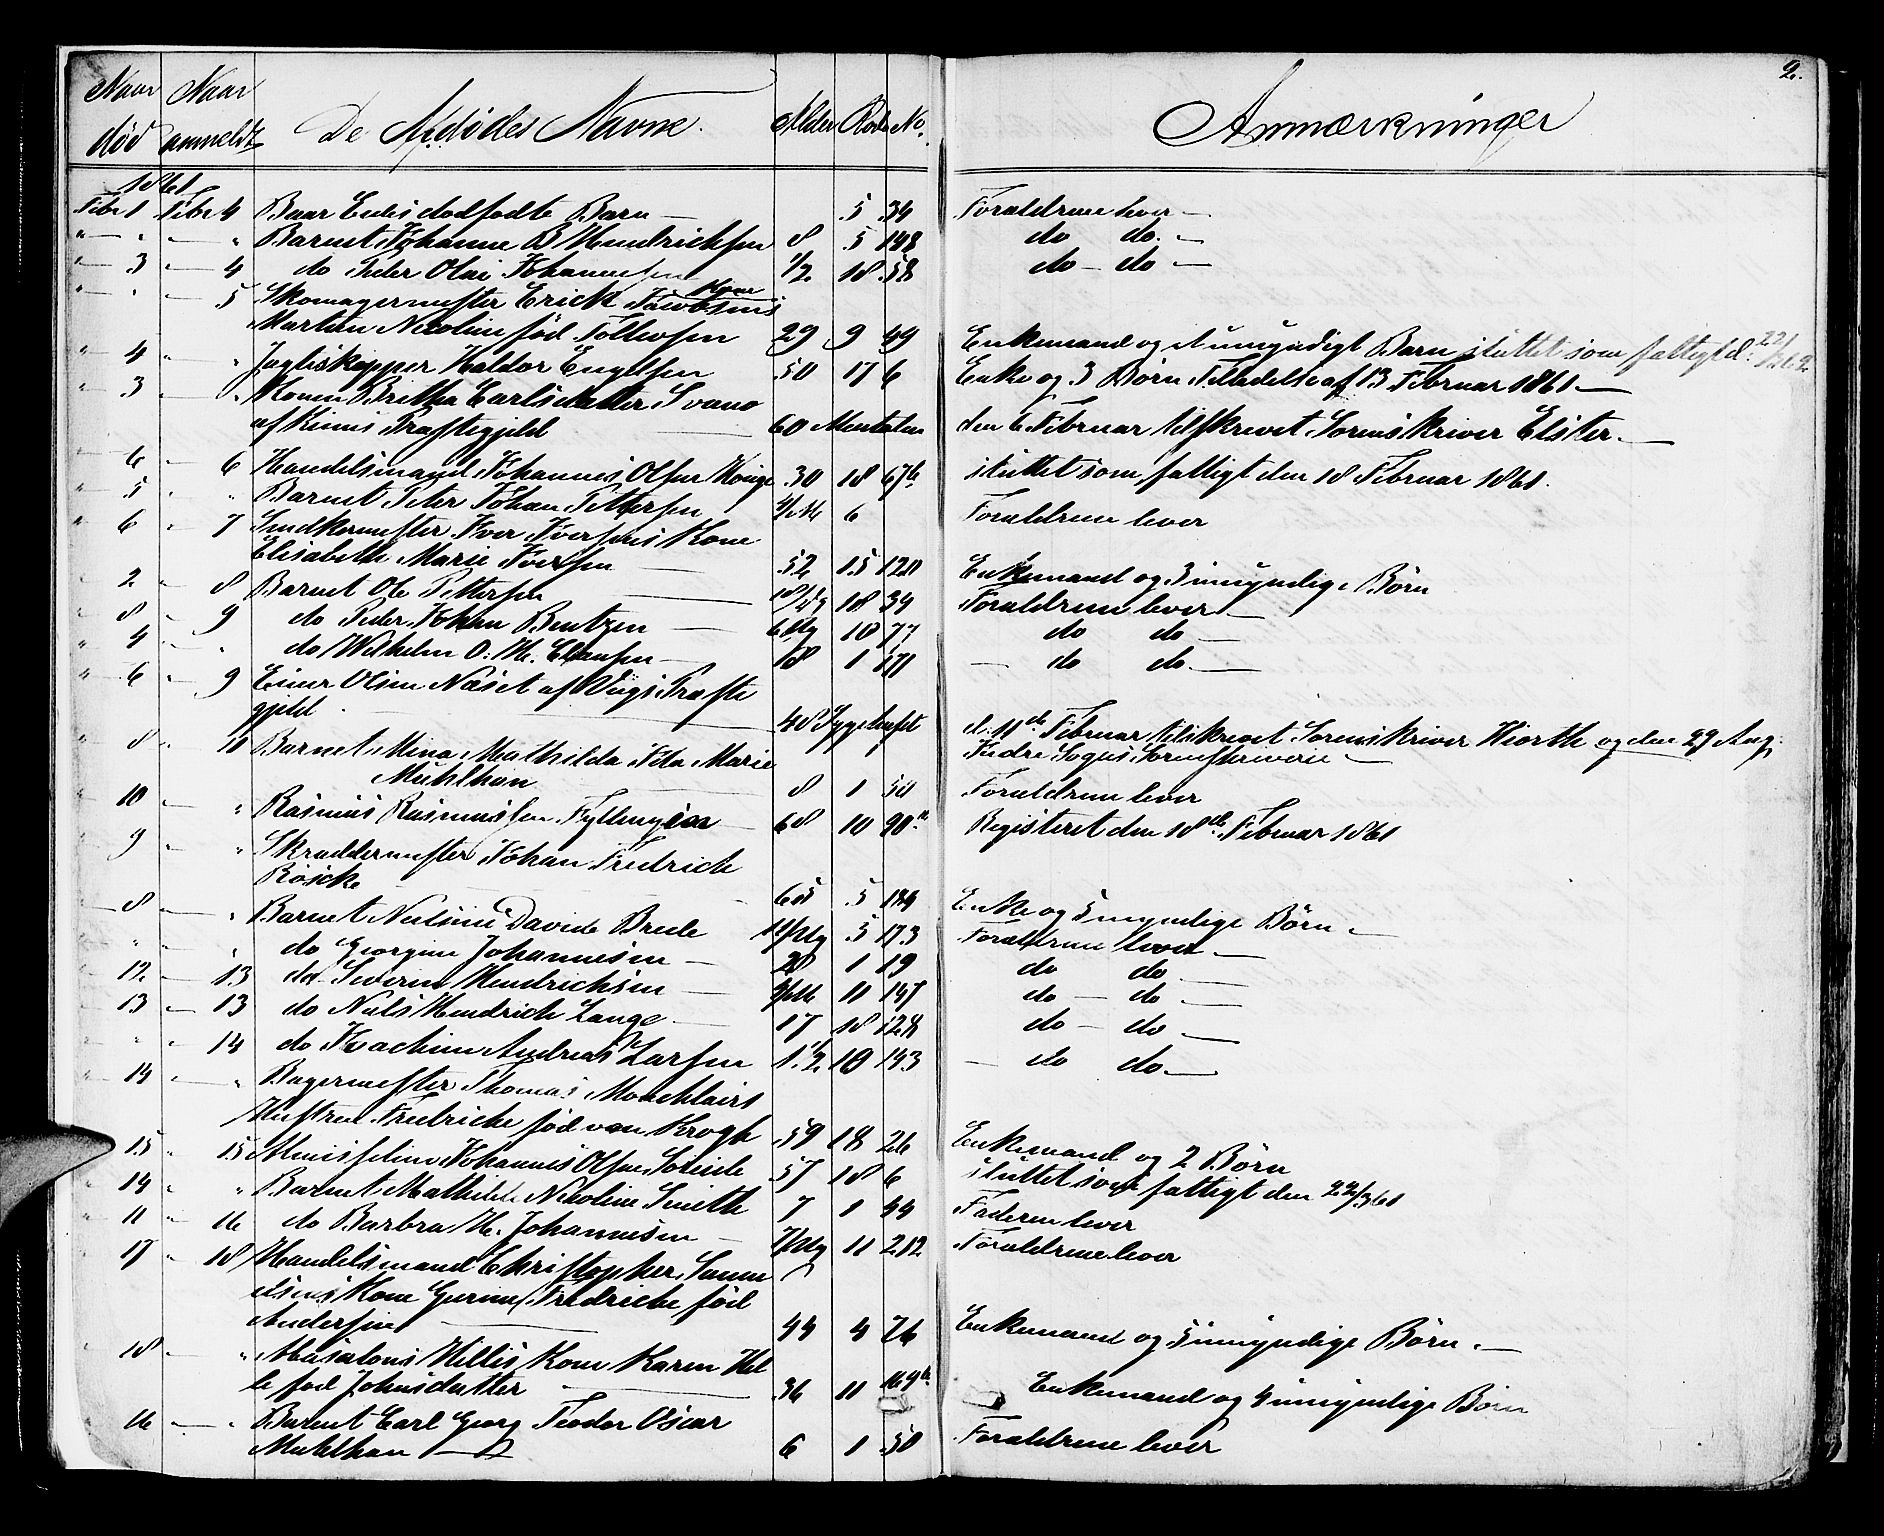 2.
Naar død Naar anmeldt De Afdødes Navne. Alder Rode No. Anmærkninger
1861
Febr 1 Febr 4 Baar Eides dødfødte Barn — 5 34 Forældrene lever —
" — " — " Barnet Johanne B Hendrichsen 8 5 148 do do. —
" — 3 — 4 do Peder Olai Johannesen 1/2 18 58 do — do —
" " — 5 Skomagermester Erick Jacobsens Kone
Martine Nicoline fød Tollevsen 29 9 49 Enkemand og et umyndigt Barn sluttet som fattigt d.
" 4 " " Jagtskipper Haldor Engelsen 50 17 6 Enke og 3 Børn Tilladelse af 13 Februar 1861 —
" 3 — " Konen Britha Carlsdatter Svanø
af Kinns Præstegjeld — 60 den 6 Februar tilskrevet Sorenskriver Elster. —
" 6 — 6 Handelsmand Johannes Olsen 30 18 67b sluttet som fattigt den 18 Februar 1861.
" 5 " " Barnet Peter Johan Pettersen 6 Forældrene lever
" 6 " 7 Snedkermester Iver Iversens Kone
Elisabeth Marie Iversen — 52 15 120 Enkemand og 3 umyndige Børn
" 2 — 8 Barnet Ole Pettersen — 18 34 Forældrene lever —
" 8 " 9 do Peder Johan Bentzen — 10 77 do do —
" 4 " " do Wilhelm O: M. Clausen — 18 1 171 — do do. —
" 6 — 9 Einer Olsen Næset af Viigs Præste
gjeld — 48 Sygehuset d. 11te Februar tilskrevet Sorenskriver Hiorth og den 29 Aug.
" 8 " 10 Barnet Mina Mathilda Ida Marie Indre Sogns Sorenskriverie —
Muhlhan 8 1 50 Forældrene lever
10 — " Rasmus Rasmussen 68 10 90a Registeret den 18de Februar 1861
9 " " Skræddermester Johan Fredrich
Röscke — 65 5 Enke og 5 umyndige Børn. —
— 8 — " Barnet Davide Brede 5 173 Forældrene lever —
" " — " do Georgine Johannesen — 1 19 do do —
12 — 13 do Severin Hendrichsen — 11 147 do — do —
13 — 13 do Nils Hendrich Lange — 17 18 128 do — do —
" " — 14 do Joachim Andreas Larsen 1 1/2 10 143 — do do. —
14 — " Bagermester Thomas
Hustrue Fredricke fød von Krogh 59 18 26 Enkemand og 2 Børn
15 " 15 Almisselem Johannes Olsen 57 18 6 sluttet som fattigt den 22/3 61
14 " " Barnet Mathilde Nicoline Smith 7 1 44 Faderen lever
" 11 " 16 do Barbra H. Johannesen — 11 212 Forældrene lever
17 " 18 Handelsmand Christopher Samu
elsens Kone Gurine Fredricke fød
Andersen — 44 4 76 Enkemand og 5 umyndige Børn. —
18 — " Absalons Hillis Kone Karen Hel
le fød Johnsdatter — 36 11 Enkemand og 4 umyndige Børn
16 — " Barnet Carl Georg Teodor Oscar
Muhlhan — 6 1 50 Forældrene lever